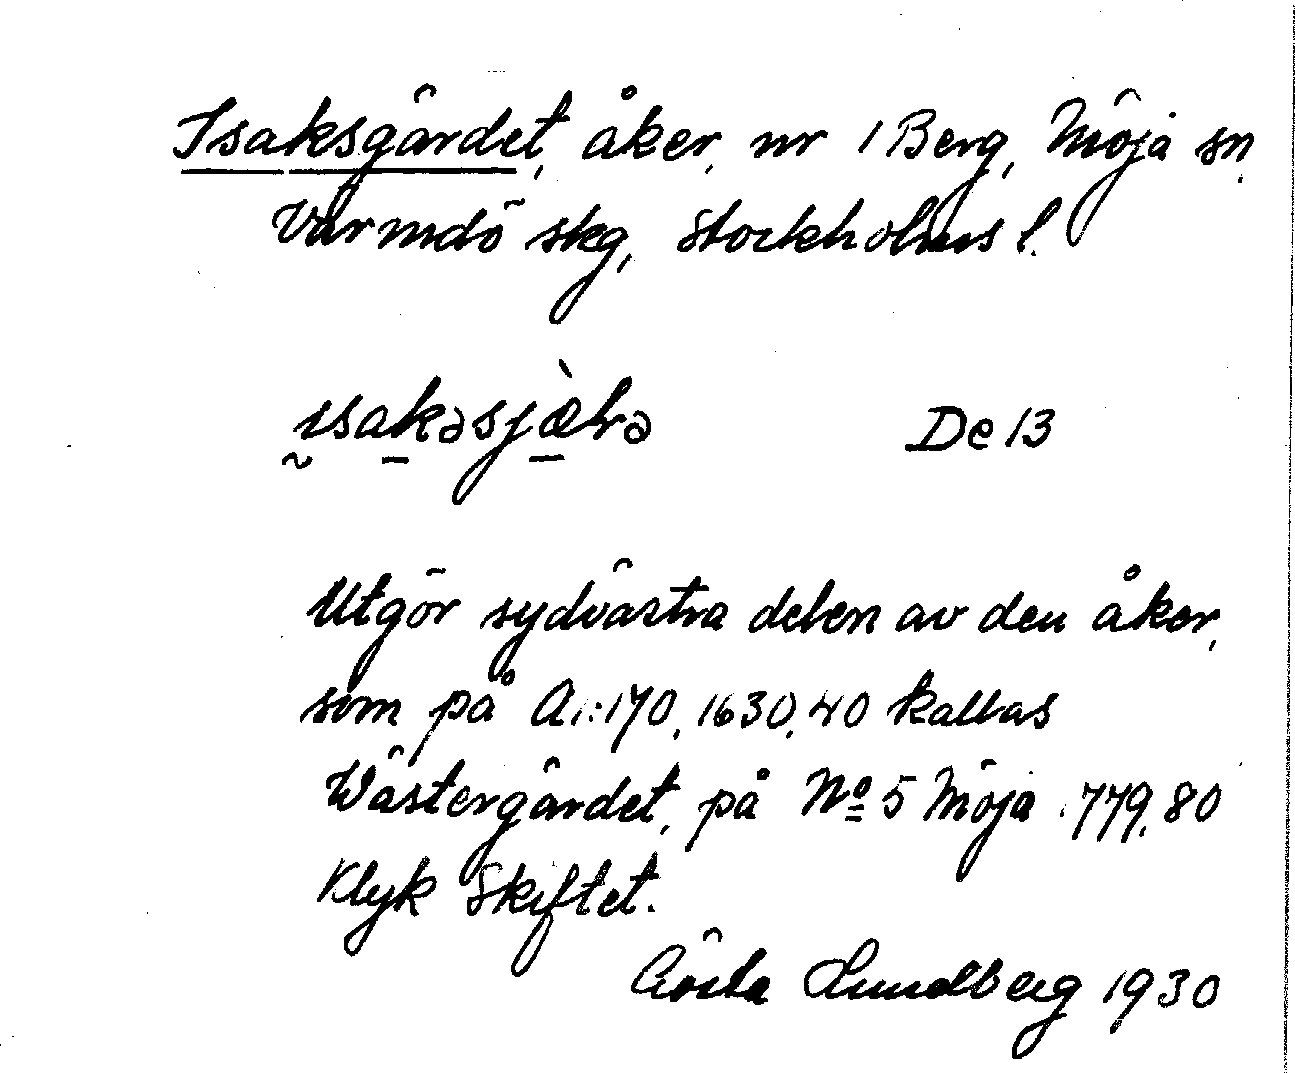 Isaksgärdet, åker, nr 1 Berg, Möja sn,
Värmdö skg, Stockholms l.
ɪsakəsjæ̀lə De 13
Utgör sydvästra delen av den åker,
som på A1:170, 1630, 40 kallas
Wästergärdet, på Nº 5 Möja :779, 80
Klyk Skiftet.
Gösta Lundberg 1930